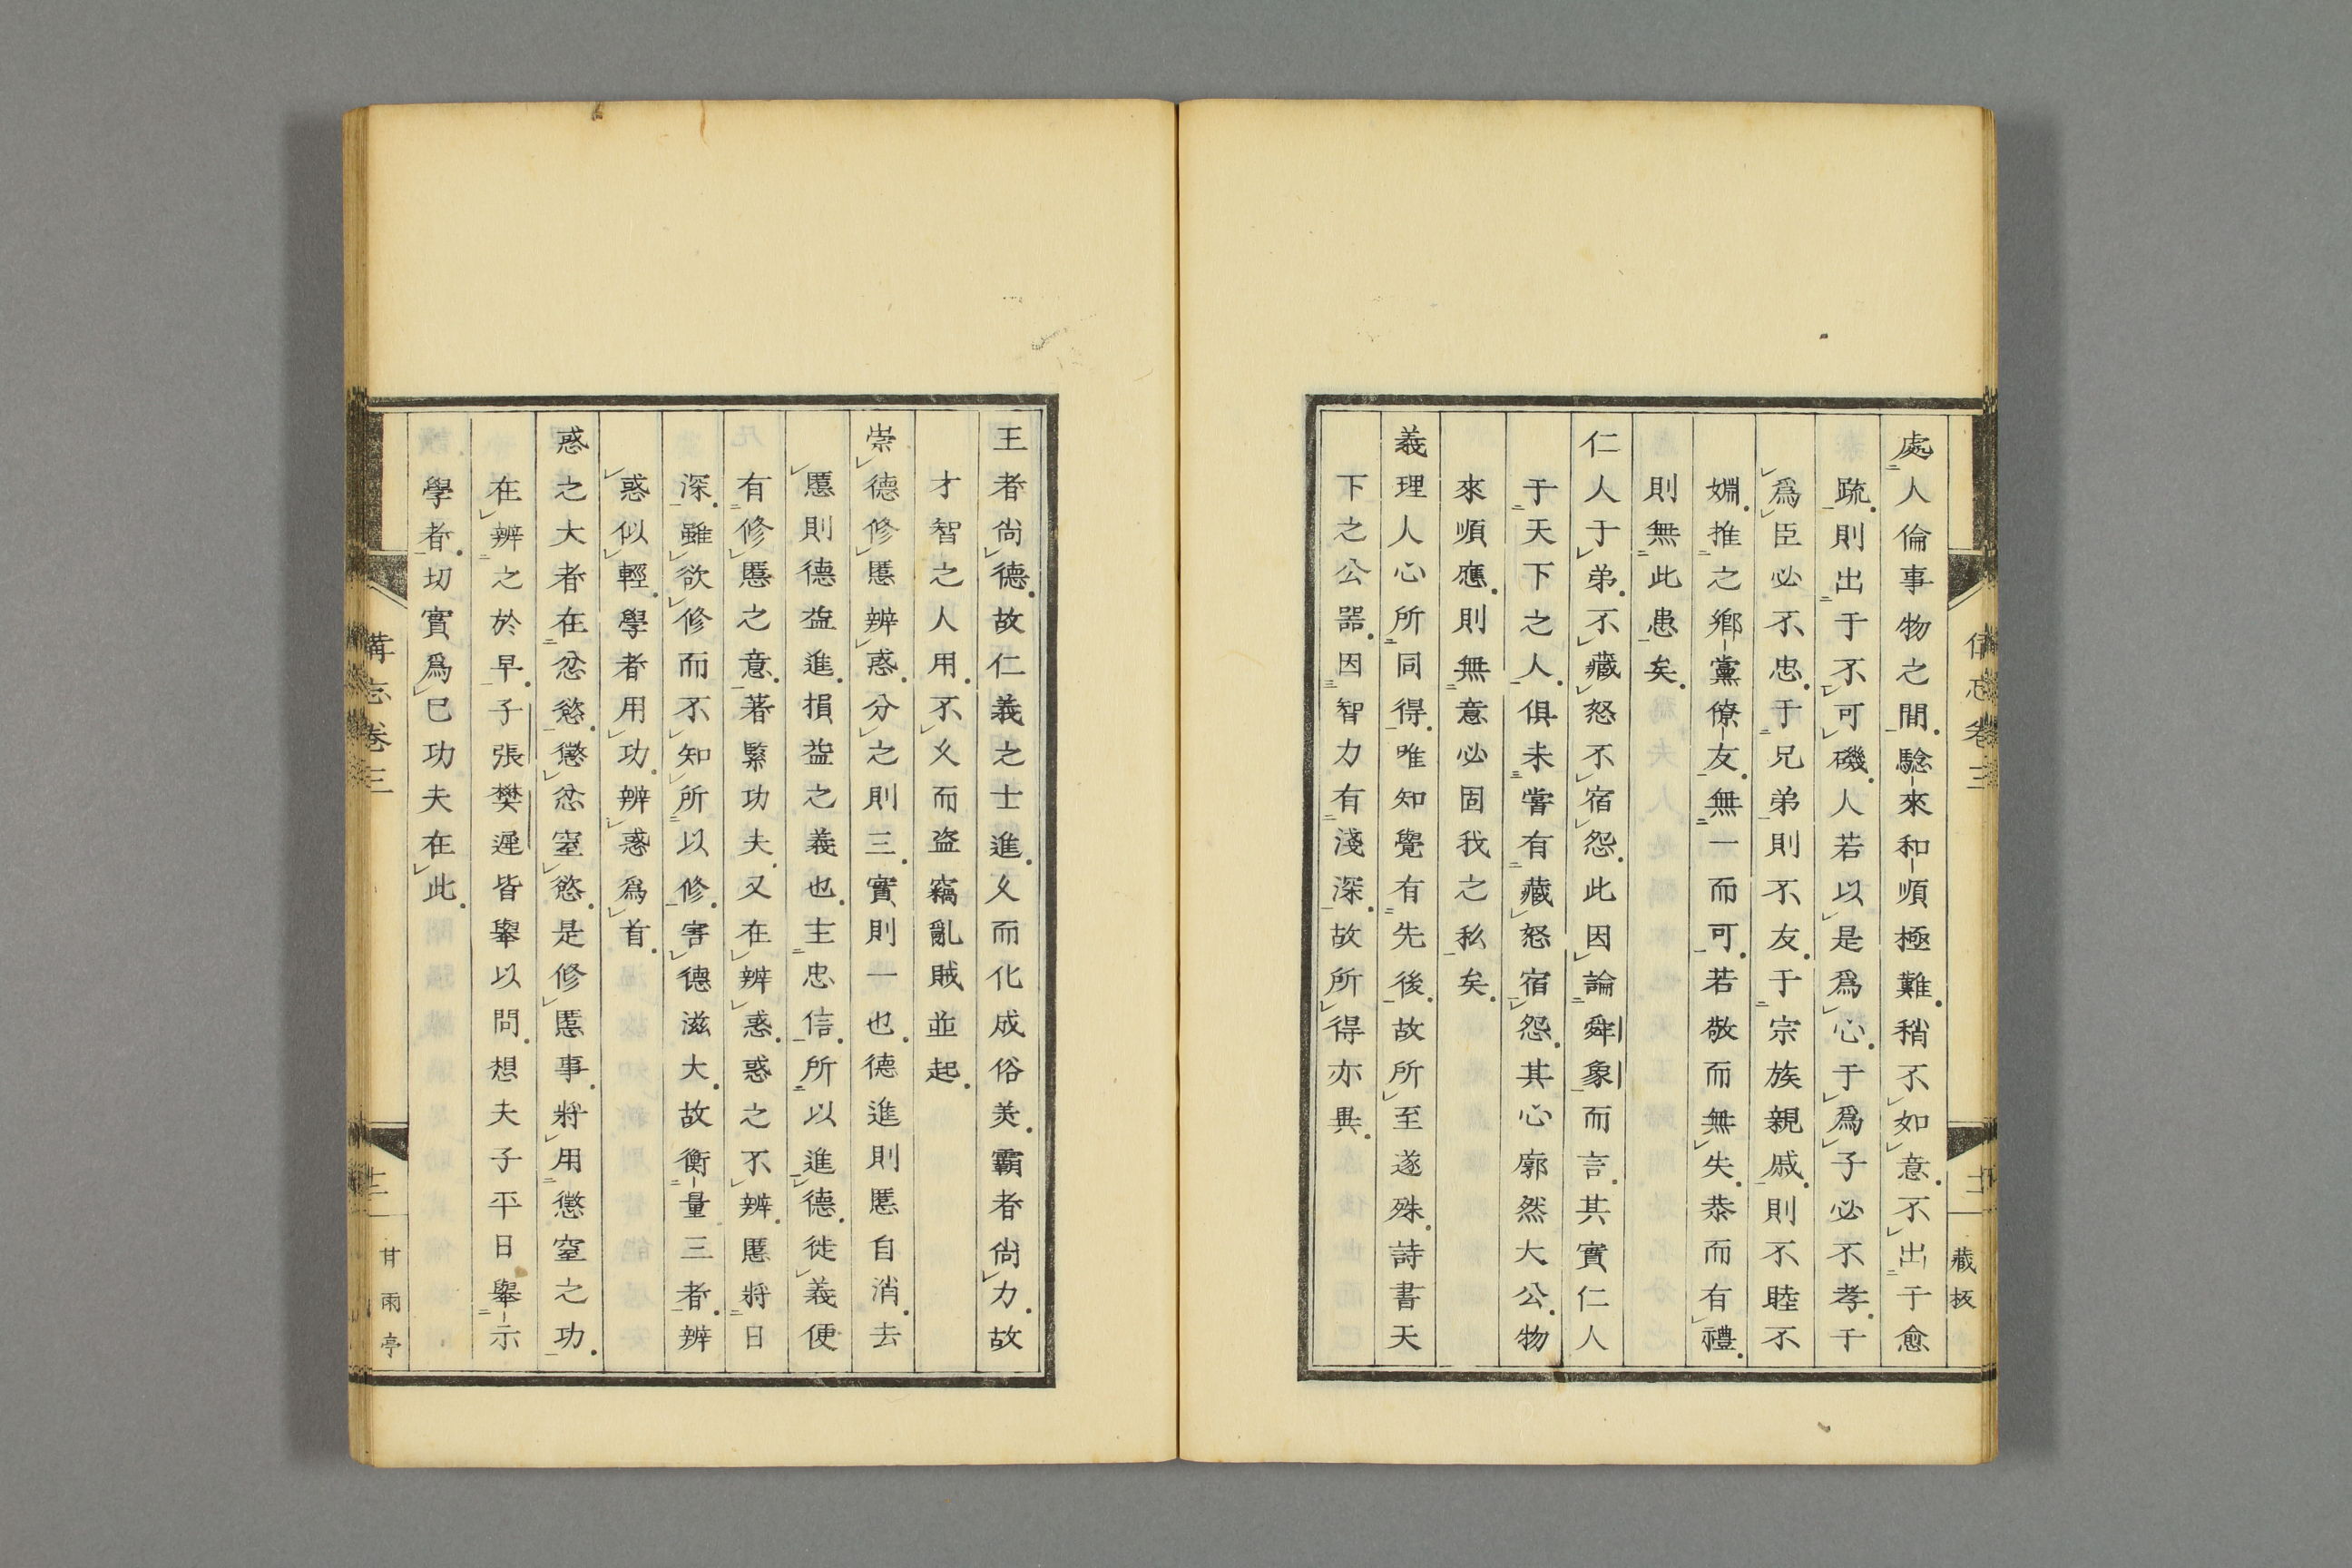 處人倫事物之間騐來和順極難稍不如意不出于愈
疏則出于不可磯人若以是爲心于爲子必不孝于
爲臣必不忠于兄弟則不友于宗族親戚則不睦不
婣推之鄉黨僚友無一而可若敬而無失恭而有禮
則無此患矣
仁人于弟不藏怒不宿怨此因論舜象而言其實仁人
于天下之人俱未嘗有藏怒宿怨其心廓然大公物
來順應則無意必固我之私矣
義理人心所同得唯知覺有先後故所至遂殊詩書天
下之公器因智力有淺深故所得亦異
藏板
王者尚德故仁義之士進乆而化成俗美霸者尚力故
才智之人用不乆而盜竊亂賊並起
崇德修慝辨惑分之則三實則一也德進則慝自消去
慝則德益進損益之義也主忠信所以進德徙義便
有修慝之意著緊功夫又在辨惑惑之不辨慝將日
深雖欲修而不知所以修害德滋大故衡量三者辨
惑似輕學者用功辨惑爲首
惑之大者在忿慾懲忿窒慾是修慝事將用懲窒之功
在辨之於早子張樊遲皆舉以問想夫子平日舉示
學者切實爲己功夫在此
備忘卷三
三
甘雨亭